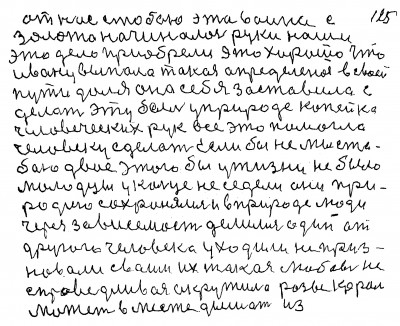 от нас с тобою эта воина с 125
золота начинался руки наши
это дело приобрели это хорошо что
ивану выпала такая определеноя в своей
пути доля она себя заставила с
делат эту более у природе копейка
человеческих рук все это помогла
человеку сделат если бы не мы ста-
бою двое этого бы у жизни не было
молодцы у конце не седели они при-
родою сохронялися в природе люди
через зависемост делился один от
другого человека уходили не приз-
новали сваши их такая любовь не
справедливая окружила разве корол
может в месте дышат из